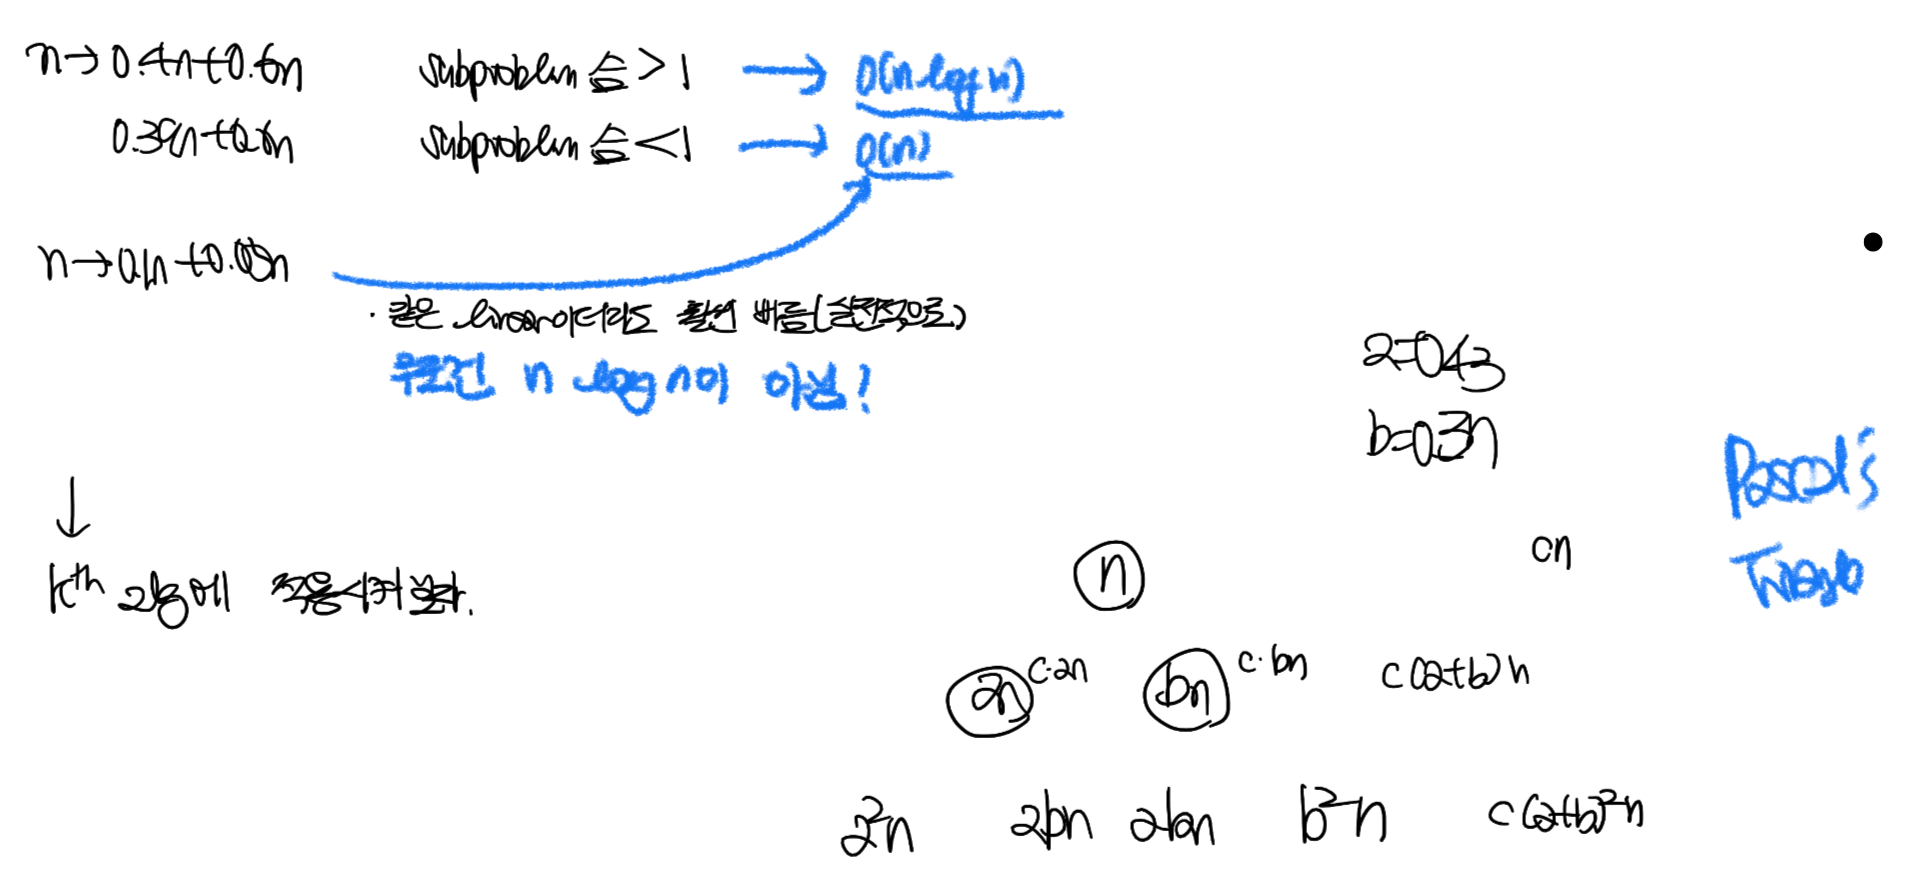 n→0.4n+0.6n subproblem 합>1 → O(n log n)
0.39n+0.6n subproblem 합<1 → O(n)
n→0.1n+0.05n
· 같은 linear이더라도 훨씬 빠름(실전적으로)
무조건 n log n이 아님!
a=0.43
b=0.3n
Pascal's
↓
cn
n
kth 2번에 적용시켜 보라.
an c·an bn c·bn c(a+b)n
a²n abn abn b²n c(a+b)²n